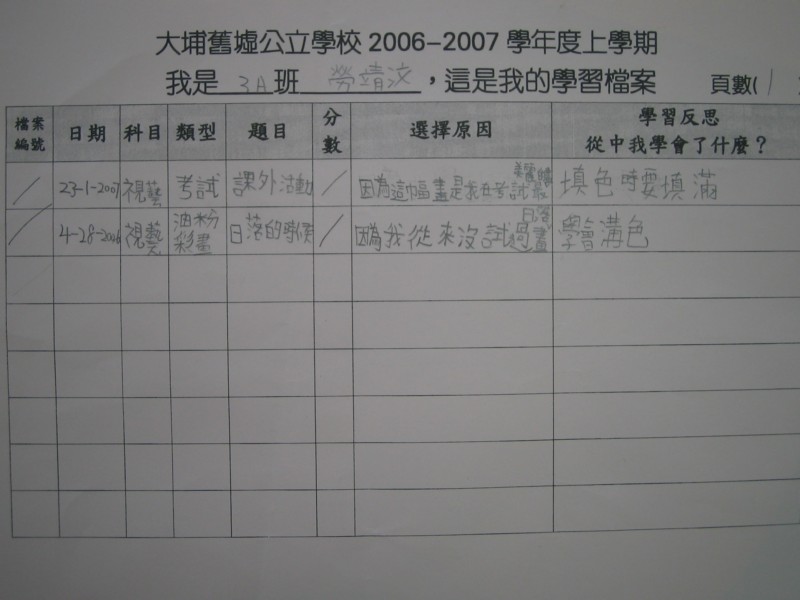 大埔舊墟公立學校 2006-2007 學年度上學期
我是 3A 班 勞靖汶,這是我的學習檔案 頁數( 1
檔案編號 日期 科目 類型 題目 分數 選擇原因 學習反思 從中我學會了什麼?
/ 23-1-2007 視藝 考試 課外活動 / 因為這幅畫是我在考試最美麗 填色時要填滿
/ 4-28-2006 視藝 油粉彩畫 日落的 / 因為我從來沒試過畫日落 學會溝色